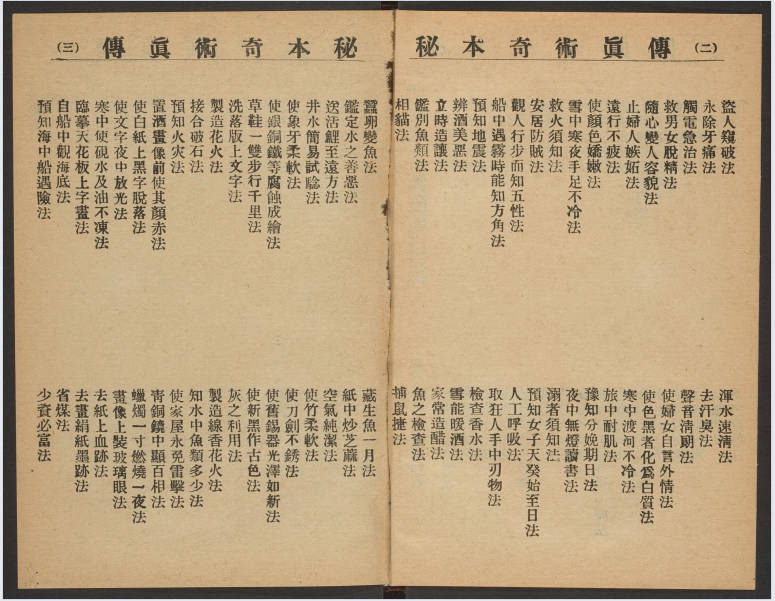 秘本奇術眞傳（二）
盜人窺破法
永除牙痛法
觸電急治法
救男女脫精法
隨心變人容貌法
止婦人嫉妬法
遠行不疲法
使顏色嬌嫩法
雪中寒夜手足不冷法
救火須知法
安居防賊法
觀人行步而知五性法
船中遇霧時能知方角法
預知地震法
辨酒美惡法
立時造讓法
鑑別魚類法
相貓法
渾水速淸法
去汗臭法
聲音淸朗法
使婦女自言外情法
使色黑者化爲白質法
寒中渡河不冷法
旅中耐肌法
豫知分娩期日法
夜中無燈讀書法
溺者須知法
預知女子天癸始至日法
人工呼吸法
取狂人手中刃物法
檢查香水法
雪能暖酒法
家常造醋法
魚之檢查法
捕鼠捷法
秘本奇術眞傳（三）
蠶卵變魚法
鑑定水之善惡法
送活鯉至遠方法
井水簡易試驗法
使象牙柔軟法
使銀銅鐵等腐蝕成繪法
草鞋一雙步行千里法
洗落版上文字法
製造花火法
接合破石法
預知火灾法
置酒畫像前使其顏赤法
使白紙上黑字脫落法
使文字夜中放光法
寒中使硯水及油不凍法
臨摹天花板上字畫法
自船中觀海底法
預知海中船遇險法
藏生魚一月法
紙中炒芝蔴法
空氣純潔法
使竹柔軟法
使刀劍不銹法
使舊錫器光澤如新法
使新黑作古色法
灰之利用法
製造線香花火法
知水中魚類多少法
使家屋永免雷擊法
靑銅鏡中顯百相法
蠟燭一寸燃燒一夜法
畫像上裝玻璃眼法
去紙上血跡法
去畫絹紙墨跡法
省煤法
少資必富法